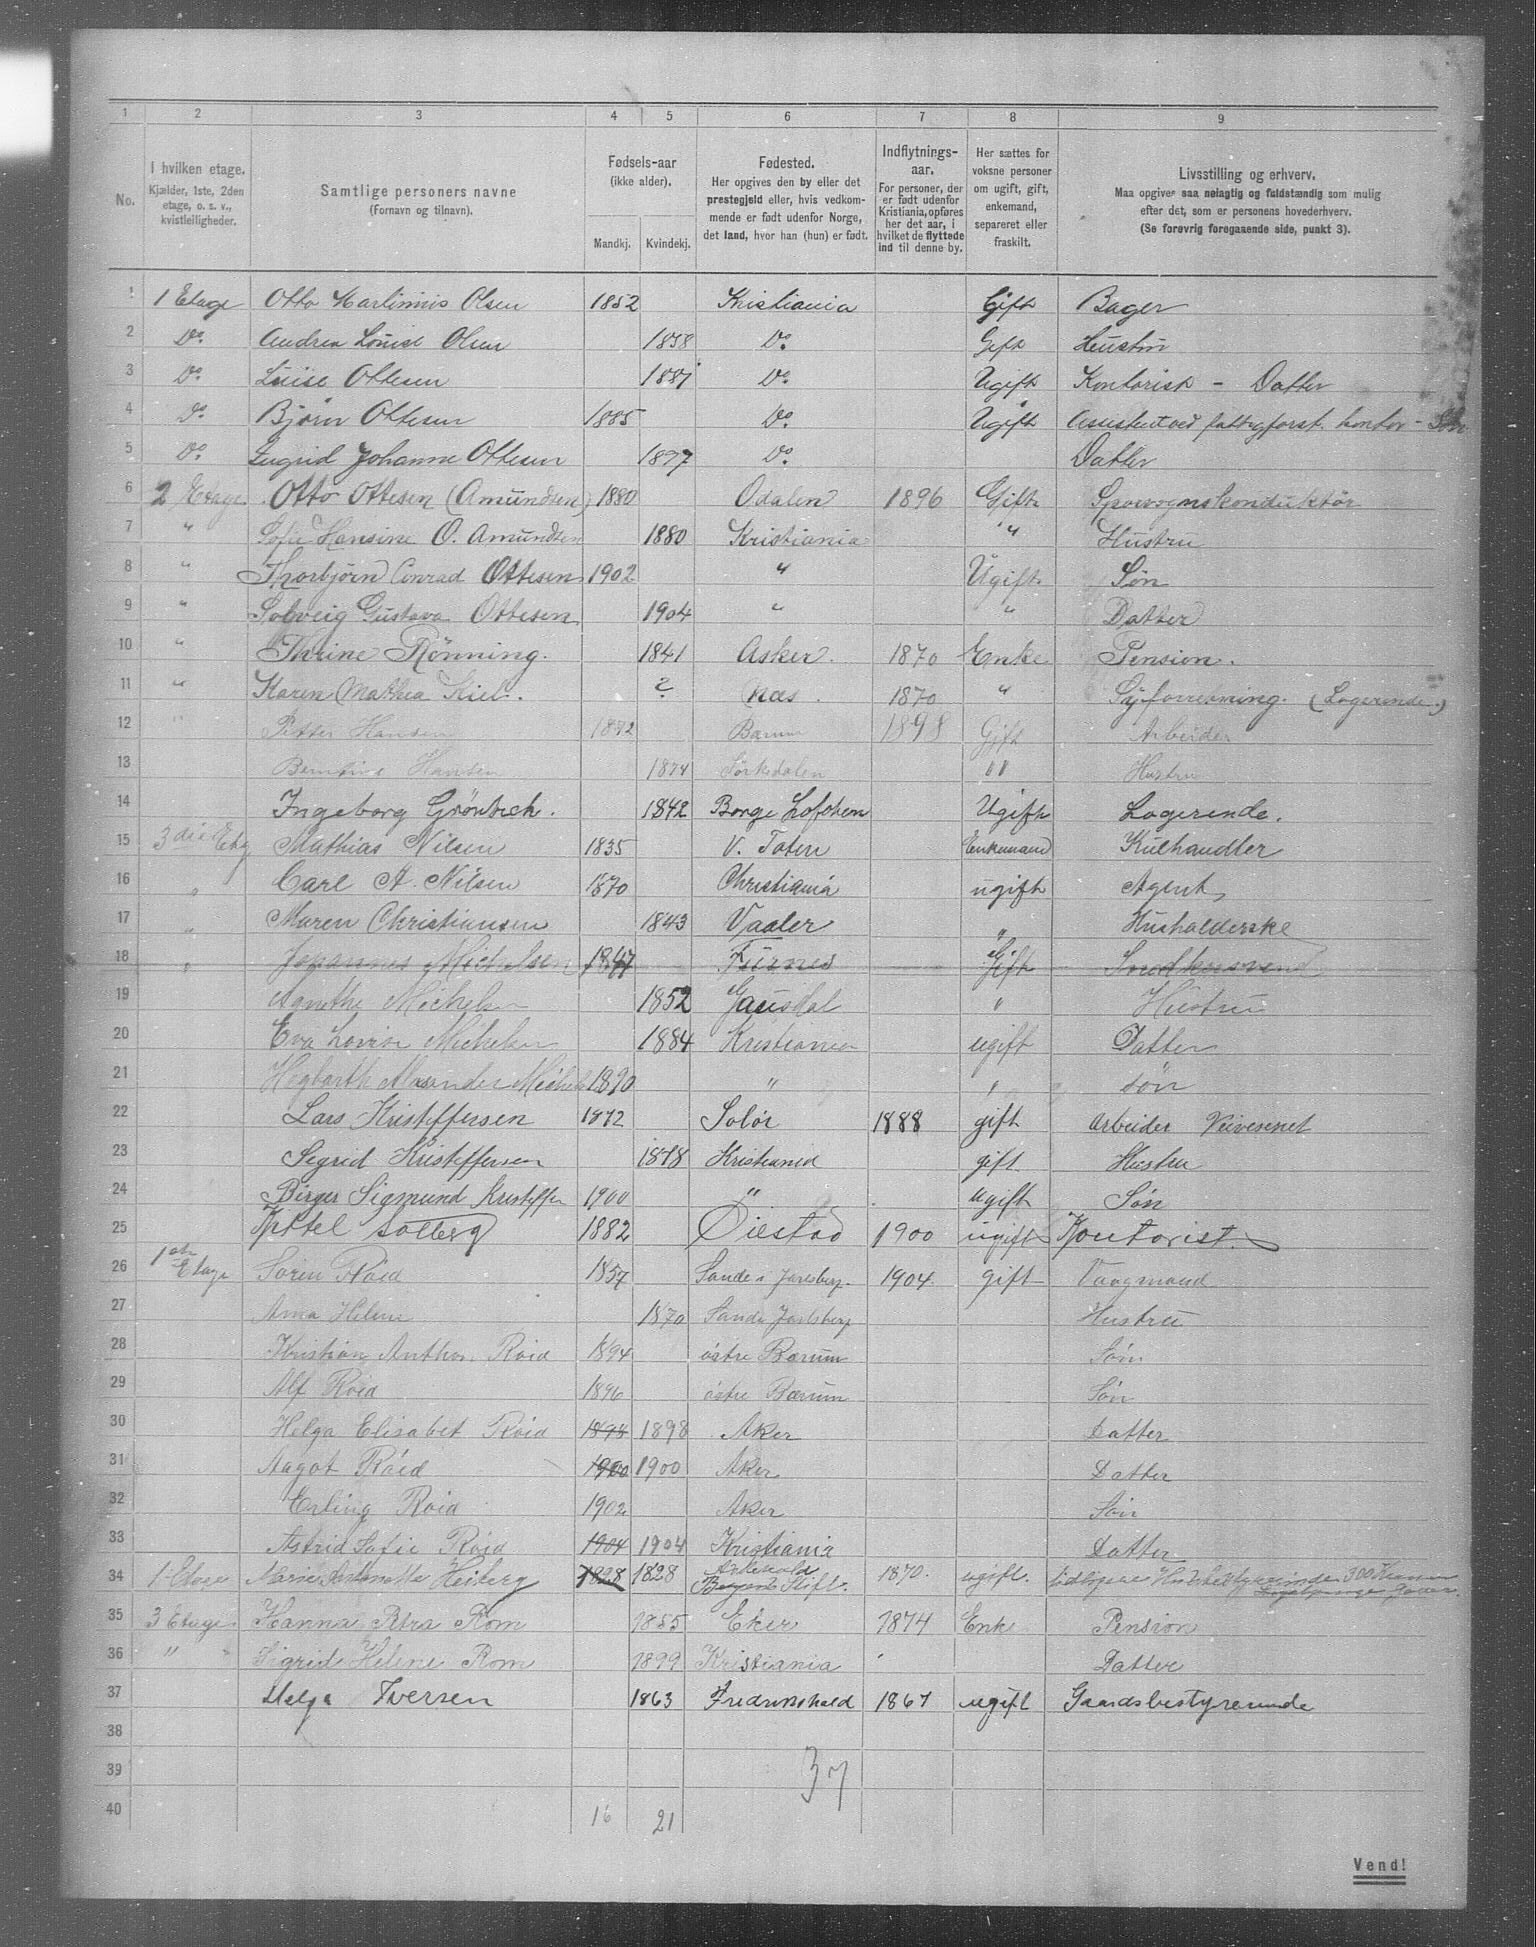 1 2 3 4 5 6 7 8 9
No.
I hvilken etage.
Kjælder, 1ste, 2den
etage, o. s. v.,
kvistleiligheder.
Samtlige personers navne
(Fornavn og tilnavn).
Fødsels-aar
(ikke alder).
Mandkj. Kvindekj.
Fødested.
Her opgives den by eller det
prestegjeld eller, hvis vedkom-
mende er født udenfor Norge,
det land, hvor han (hun) er født.
Indflytnings-
aar.
For personer, der
er født udenfor
Kristiania, opføres
her det aar, i
hvilket de flyttede
ind til denne by.
Her sættes for
voksne personer
om ugift, gift,
enkemand,
separeret eller
fraskilt.
Livsstilling og erhverv.
Maa opgives saa nøiagtig og fuldstændig som mulig
efter det, som er personens hovederhverv.
(Se forøvrig foregaaende side, punkt 3).
1 1 Etage Otto Martinius Olsen 1852 Kristiania Gift Bager
2 Do. Andrea Louise Olsen Do. Gift Hustru
3 Do. Luise Ottesen 1881 Do. Ugift Kontorist - Datter
4 Do. Bjørn Ottesen 1885 Do. Ugift Assistent ved fattigforst. kontor - Søn
5 Do. Ingrid Johanne Ottesen 1877 Do. Datter
6 2 Etage Otto Ottesen (Amundsen) 1880 Odalen 1896 Gift Sporvognskonduktør
7 " Sofie Hansine O. Amundsen 1880 Kristiania " Hustru
8 " Thorbjørn Conrad Ottesen 1902 " Ugift Søn
9 " Solveig Gustava Ottesen 1904 " " Datter
10 " Thrine Rønning. 1841 Asker. 1870 Enke Pension.
11 " Karen Mathea Kiel. ? Næs. 1870 " Syforretning. (Logerinde.)
12 " Petter Hansen 1872 Bærum 1898 Gift Arbeider
13 Berntine Hansen 1874 Sørkedalen " Hustru
14 Ingeborg 1842 Borge Lofoten Ugift Logerende.
15 3die Etg Mathias Nilsen 1835 V. Toten Enkemand Kulhandler
16 " Carl A. Nilsen 1870 Christiania ugift Agent
17 " Maren Christiansen 1843 Vaaler " Husholderske
18 " Johannes Michelsen 1847 Furnes Gift
19 Agnethe Michelsen 1852 Gausdal " Hustru
20 Eva Lovise Michelsen 1884 Kristiania ugift Datter
21 Hogbarth Alexander Michels 1890 " " søn
22 Lars Kristoffersen 1872 Solør 1888 gift Arbeider Veivesenet
23 Sigrid Kristoffersen 1878 Kristiania gift Hustru
24 Birger Sigmund Kristoffer 1900 " ugift Søn
25 Kittel Solberg 1882 Øiestad 1900 ugift Kontorist.
26 1ste Etage Søren Røid 1857 Sande i Jarlsberg 1904 gift Vaagmand
27 Anna Helene 1870 Sande Jarlsberg Hustru
28 Kristian Anthon Røid 1894 østre Bærum Søn
29 Alf Røid 1896 østre Bærum Søn
30 Helga Elisabet Røid 1898 1898 Aker Datter
31 Aagot Røid 1900 1900 Aker Datter
32 Erling Røid 1902 Aker Søn
33 Astrid Sofie Røid 1904 1904 Kristiania Datter
34 1 Etage Marie Antonette Heiberg 1828 1828 Bergens Stift. 1870. ugift. 300 Kroner
35 3 Etage Hanna Petra Rom 1855 Eker 1874 Enke Pension
36 " " Sigrid Helene Rom 1899 Kristiania Datter
37 Helga Iversen 1863 Fredrikshald 1867 ugift Gaardsbestyrerinde
38
39 37
40 16 21
Vend!